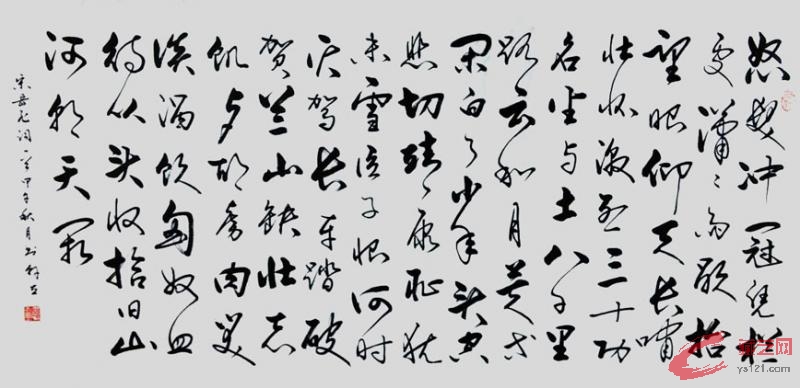 怒髮冲冠憑栏
處瀟瀟雨歇抬
望眼仰天長嘯
壮怀激烈三十功
名尘与土八千里
路云和月莫等
闲白了少年头空
悲切靖康耻犹
未雪臣子恨何时
灭驾长车踏破
贺兰山缺壮志
饥餐胡虏肉笑
谈渴饮匈奴血
待从头收拾旧山
河朝天阙
宋岳飞词一首甲午秋月书
艺网
ys121.com